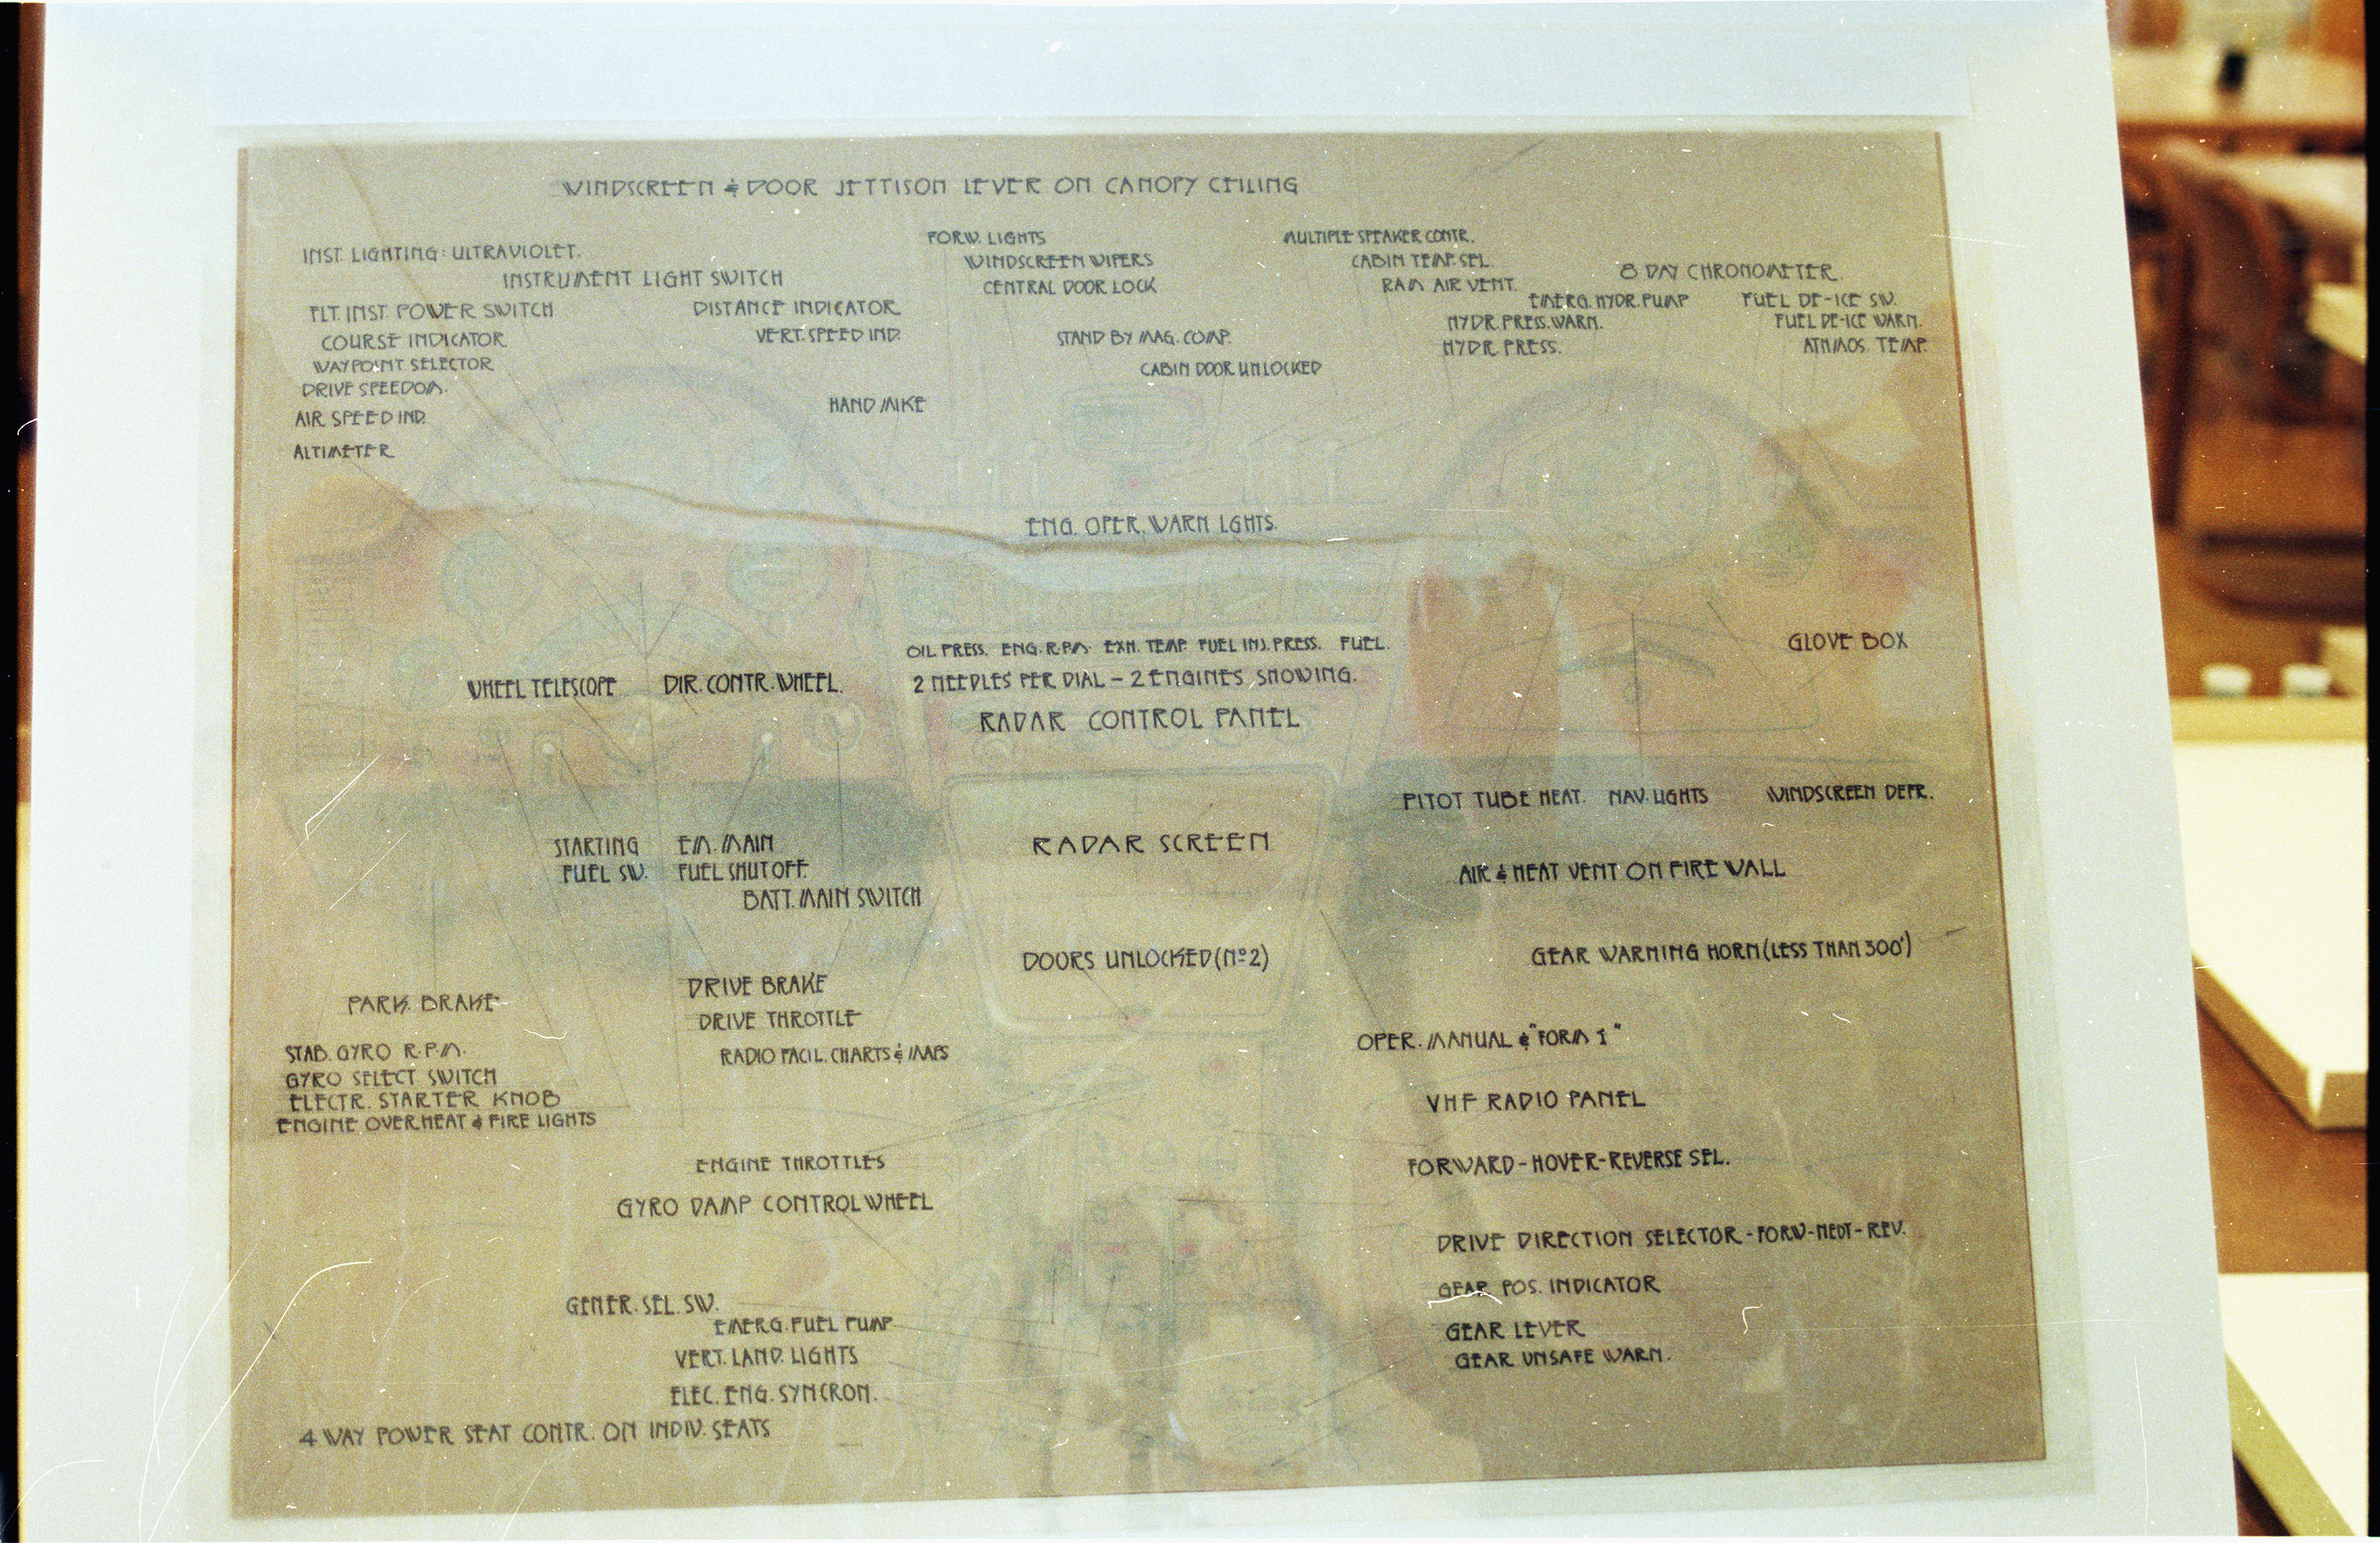 WINDSCREEN & DOOR JETTISON LEVER ON CANOPY CEILING
INST. LIGHTING: ULTRAVIOLET.
INSTRUMENT LIGHT SWITCH
FLT. INST. POWER SWITCH
COURSE INDICATOR
WAYPOINT SELECTOR
DRIVE SPEEDOM.
AIR SPEED IND.
ALTIMETER
DISTANCE INDICATOR
VERT. SPEED IND.
HAND MIKE
FORW. LIGHTS
WINDSCREEN WIPERS
CENTRAL DOOR LOCK
STAND BY MAG. COMP.
CABIN DOOR UNLOCKED
MULTIPLE SPEAKER CONTR.
CABIN TEMP. SEL.
RAM AIR VENT.
EMERG. HYDR. PUMP
HYDR. PRESS. WARN.
HYDR. PRESS.
8 DAY CHRONOMETER.
FUEL DE-ICE SW.
FUEL DE-ICE WARN.
ATMOS. TEMP.
ENG. OPER. WARN LGHTS.
WHEEL TELESCOPE
DIR. CONTR. WHEEL.
OIL PRESS. ENG. R.P.M. EXH. TEMP. FUEL INJ. PRESS. FUEL.
2 NEEDLES PER DIAL - 2 ENGINES SHOWING.
RADAR CONTROL PANEL
GLOVE BOX
STARTING
FUEL SW.
EM. MAIN
FUEL SHUT OFF.
BATT. MAIN SWITCH
RADAR SCREEN
PITOT TUBE HEAT. NAV. LIGHTS WINDSCREEN DEFR.
AIR & HEAT VENT ON FIRE WALL
DOORS UNLOCKED (Nº2)
GEAR WARNING HORN (LESS THAN 300')
PARK. BRAKE
DRIVE BRAKE
DRIVE THROTTLE
RADIO FACIL. CHARTS & MAPS
OPER. MANUAL & "FORM 1"
STAB. GYRO R.P.M.
GYRO SELECT SWITCH
ELECTR. STARTER KNOB
ENGINE OVERHEAT & FIRE LIGHTS
VHF RADIO PANEL
ENGINE THROTTLES
GYRO DAMP CONTROL WHEEL
FORWARD - HOVER - REVERSE SEL.
DRIVE DIRECTION SELECTOR - FORW - NEUT - REV.
GEAR POS. INDICATOR
GEAR LEVER
GEAR UNSAFE WARN.
GENER. SEL. SW.
EMERG. FUEL PUMP
VERT. LAND. LIGHTS
ELEC. ENG. SYNCRON.
4 WAY POWER SEAT CONTR. ON INDIV. SEATS